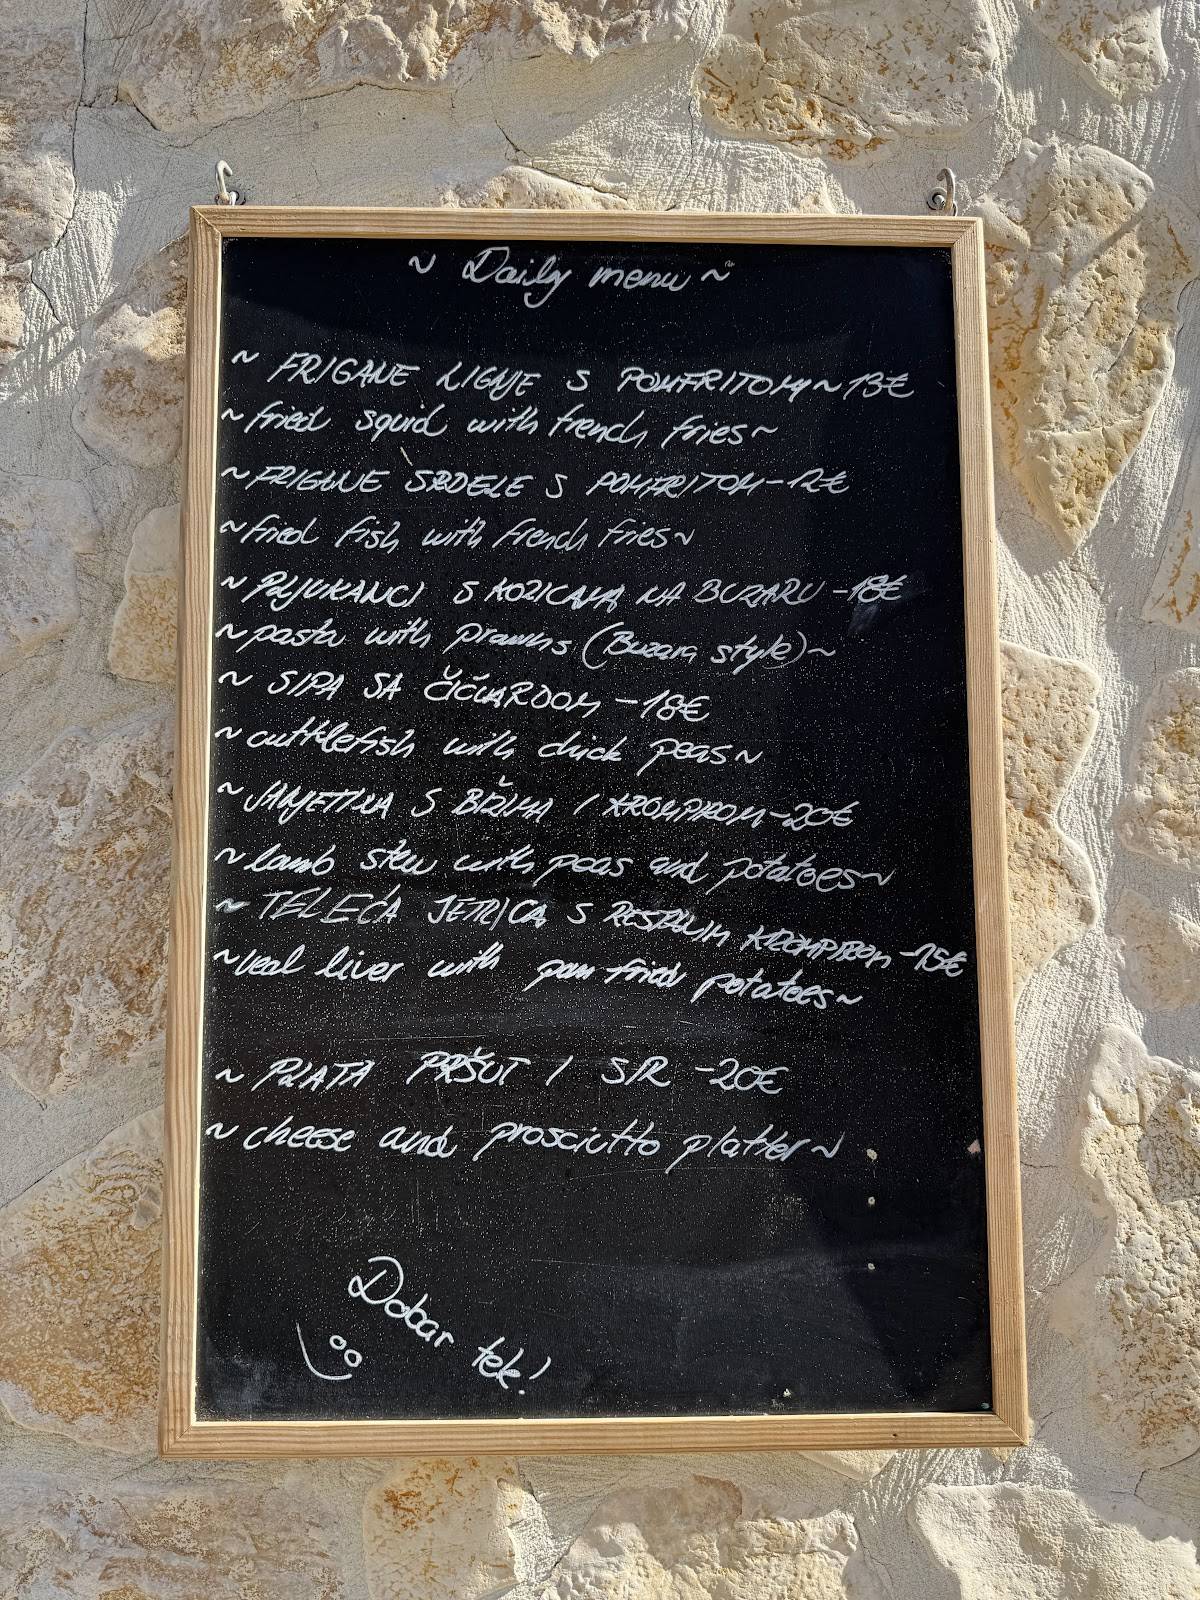 ~ Daily menu ~
~ FRIGANE LIGNJE S POMFRITOM ~ 13€
~ fried squid with french fries ~
~ FRIGANE SRDELE S POMFRITOM - 12€
~ fried fish with french fries ~
~ PLJUKANCI S KOZICAMA NA BUZARU - 18€
~ pasta with prawns (Buzara style) ~
~ SIPA SA ČIČVARDOM - 18€
~ cuttlefish with chick peas ~
~ JANJETINA S BIŽIMA I KROMPIROM - 20€
~ lamb stew with peas and potatoes ~
~ TELEĆA JETRICA S RESTANIM KROMPIROM - 15€
~ veal liver with pan fried potatoes ~
~ PLATA PRŠUT I SIR - 20€
~ cheese and prosciutto platter ~
Dobar tek!